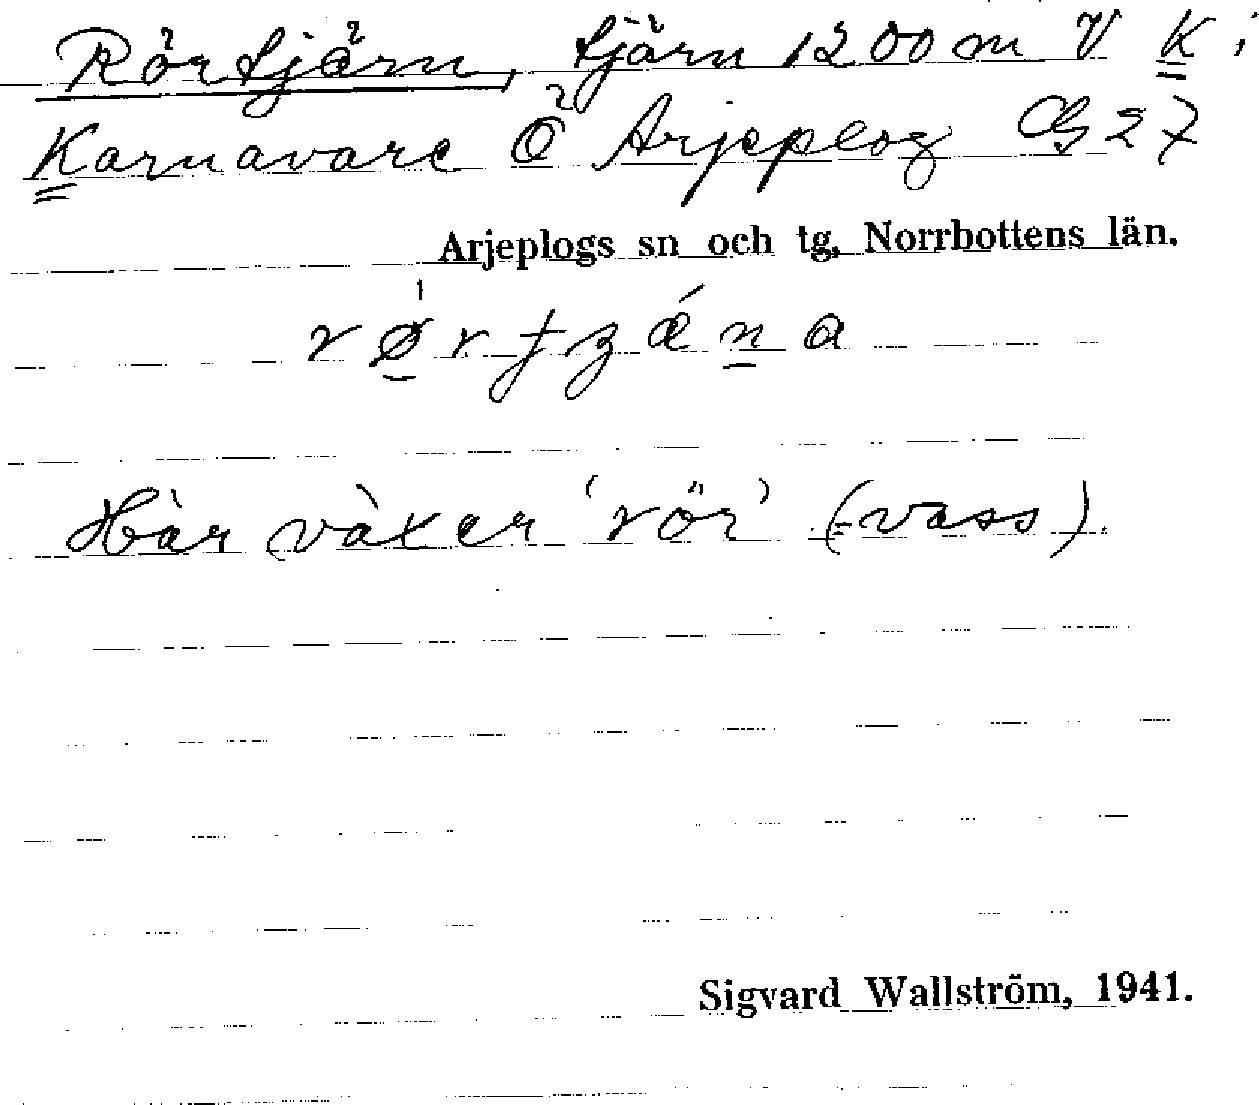 Rörtjärn, tjärn 1200 m V K i
Karnavare Ö Arjeplog CG 27
Arjeplogs sn och tg, Norrbottens län.
Här växer 'rör' (=vass).
Sigvard Wallström, 1941.